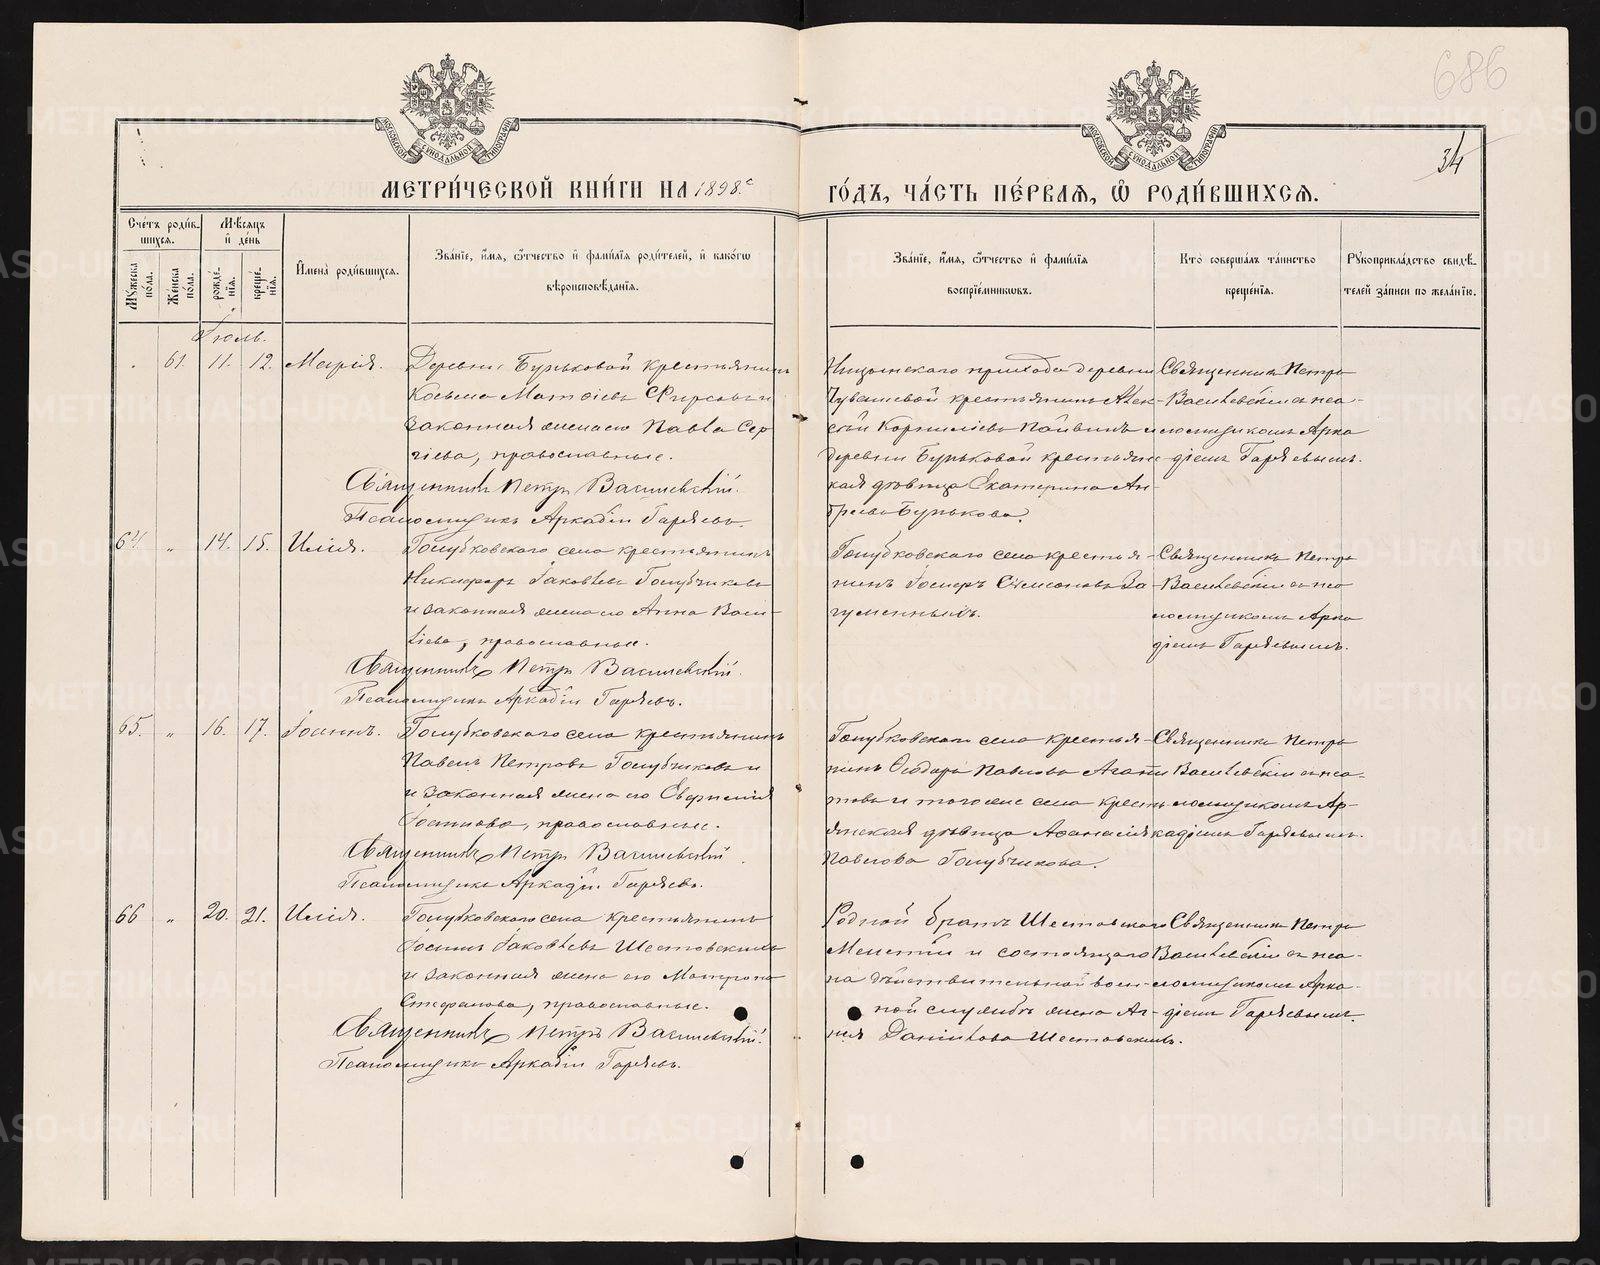 686
34
МОСКОВСКОЙ СѴНОДАЛЬНОЙ ТИПОГРАФІИ
МОСКОВСКОЙ СѴНОДАЛЬНОЙ ТИПОГРАФІИ
МЕТРИ́ЧЕСКОЙ КНИ́ГИ НА 1898.
ГО́ДЪ, ЧА́СТЬ ПЕ́РВАѦ, Ѽ РОДИ́ВШИХСѦ.
Сче́тъ роди́в-
шихсѧ.
Мꙋжеска по́ла.
Же́нска по́ла.
Мѣ́сѧцъ и҆ де́нь
рожде́нїѧ.
креще́нїѧ.
И҆мена̀ роди́вшихсѧ.
Зва́нїе, и҆́мѧ, ѻ҆́тчество и҆ фами́лїѧ роди́телей, и҆ како́гѡ
вѣроисповѣ́данїѧ.
Зва́нїе, и҆́мѧ, ѻ҆́тчество и҆ фами́лїѧ
воспрїе́мникѡвъ.
Кто̀ соверша́лъ та́инство
креще́нїѧ.
Рꙋкоприкла́дство свидѣ́-
телей за́писи по жела́нїю.
Іюль.
61. 11. 12. Марія.
Деревни Бурьковой крестьянинъ
Косьма Матѳіевъ Фирсовъ и
законная жена его Павла Сер
гіева, православные.
Священникъ Петръ Василевскій.
Псаломщикъ Аркадій Гаряевъ.
Ницынскаго прихода деревни
Чувашевой крестьянинъ Алек-
сѣй Корниліевъ Пайвинъ и
деревни Бурьковой крестьянс-
кая дѣвица Екатерина Ан-
дреева Бурькова.
Священникъ Петръ
Василевскій съ пса-
ломщикомъ Арка
діемъ Гаряевымъ.
64. „ 14. 15. Илія.
Голубковскаго села крестьянинъ
Никифоръ Іаковлевъ Голубчиковъ
и законная жена его Анна Васи-
ліева, православные.
Священникъ Петръ Василевскій.
Псаломщикъ Аркадій Гаряевъ.
Голубковскаго села крестья-
нинъ Іосифъ Симеоновъ За-
гуменныхъ.
Священникъ Петръ
Василевскій съ пса
ломщикомъ Арка
діемъ Гаряевымъ.
65. „ 16. 17. Іоаннъ.
Голубковскаго села крестьянинъ
Павелъ Петровъ Голубчиковъ и
и законная жена его Евфимія
Іоаннова, православные.
Священникъ Петръ Василевскій
Псаломщикъ Аркадій Гаряевъ.
Голубковскаго села крестья-
нинъ Ѳеодоръ Павловъ Агапи
товъ и того же села кресть
янская дѣвица Аѳанасія
Павлова Голубчикова.
Священникъ Петръ
Василевскій съ пса-
ломщикомъ Ар-
кадіемъ Гаряевымъ.
66 „ 20. 21. Илія.
Голубковскаго села крестьянинъ
Іосифъ Іаковлевъ Шестовскихъ
и законная жена его Матрона
Стефанова, православные.
Священникъ Петръ Василевскій.
Псаломщикъ Аркадій Гаряевъ.
Родной братъ Шестовскаго
и состоящаго
на дѣйствительной воен-
ной службѣ жена Аг-
нія Даніилова Шестовскихъ.
Священникъ Петръ
Василевскій съ пса-
ломщикомъ Арка-
діемъ Гаряевымъ.
METRIKI.GASO-URAL.RU